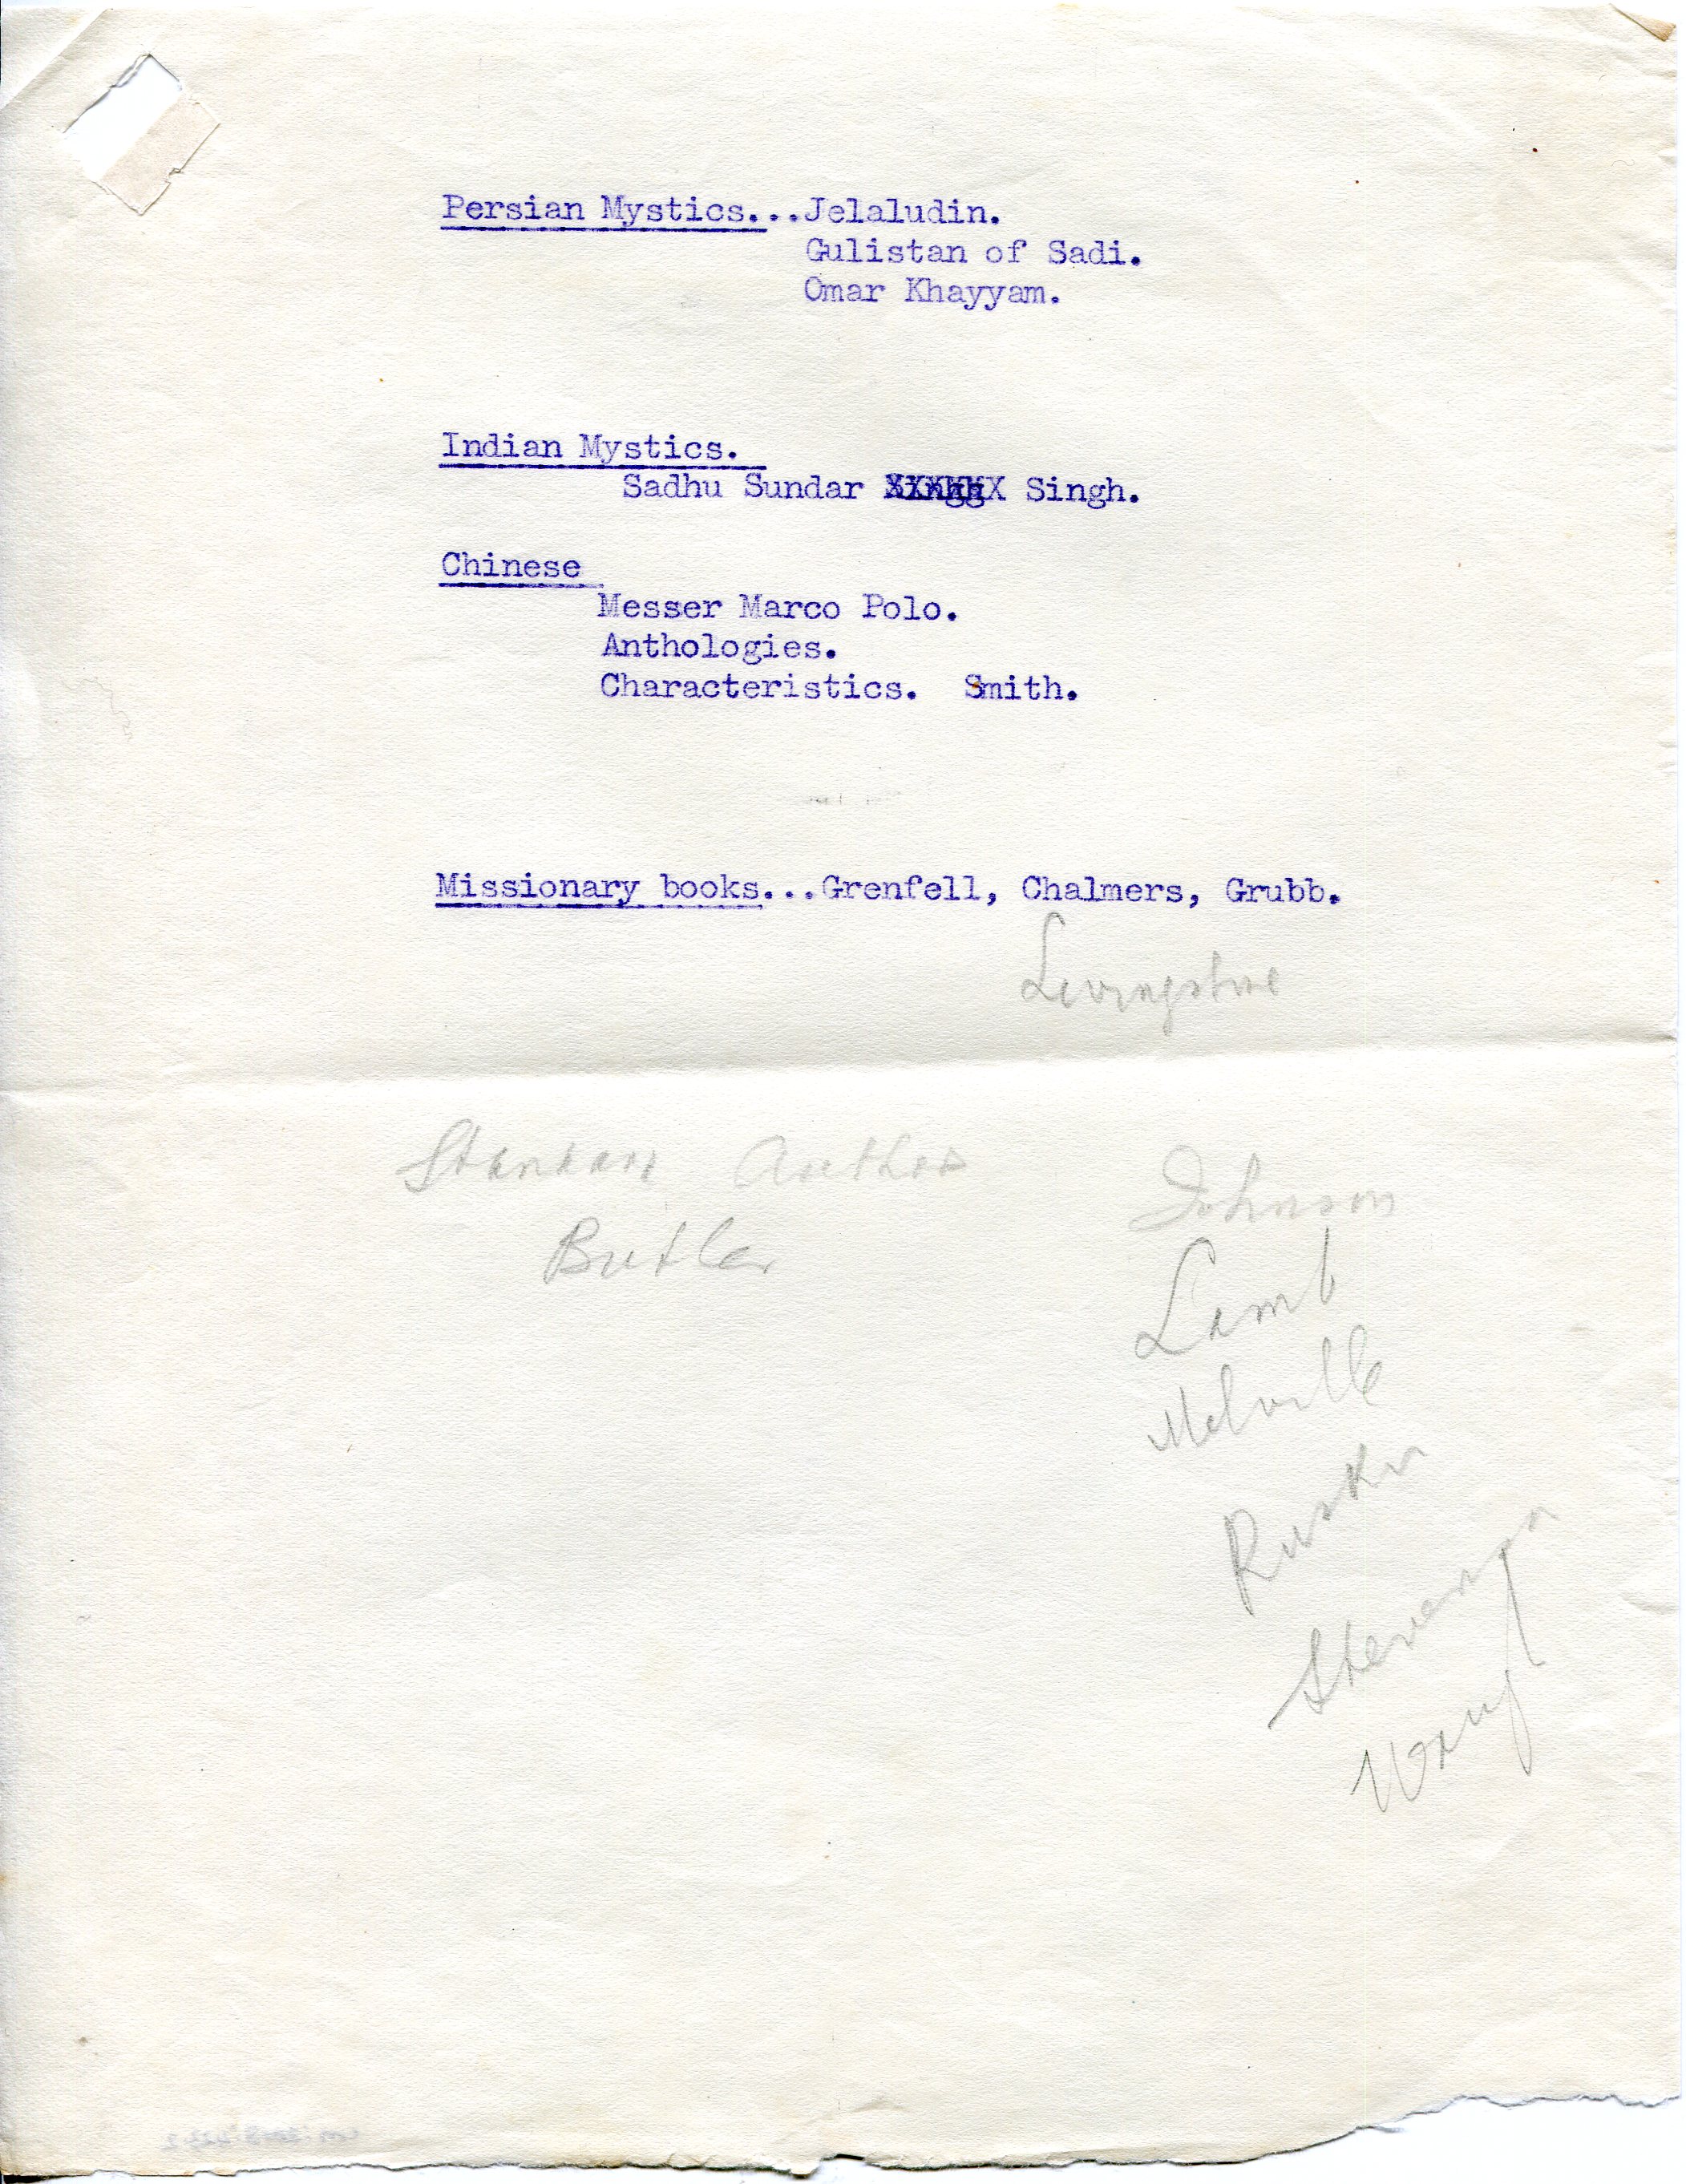 Persian Mystics...Jelaludin.
Gulistan of Sadi.
Omar Khayyam.
Indian Mystics.
Sadhu Sundar Singh.
Chinese
Messer Marco Polo.
Anthologies.
Characteristics. Smith.
Missionary books...Grenfell, Chalmers, Grubb.
Livingstone
Standard Authors
Butler
Johnson
Lamb
Melville
Ruskin
Stevenson